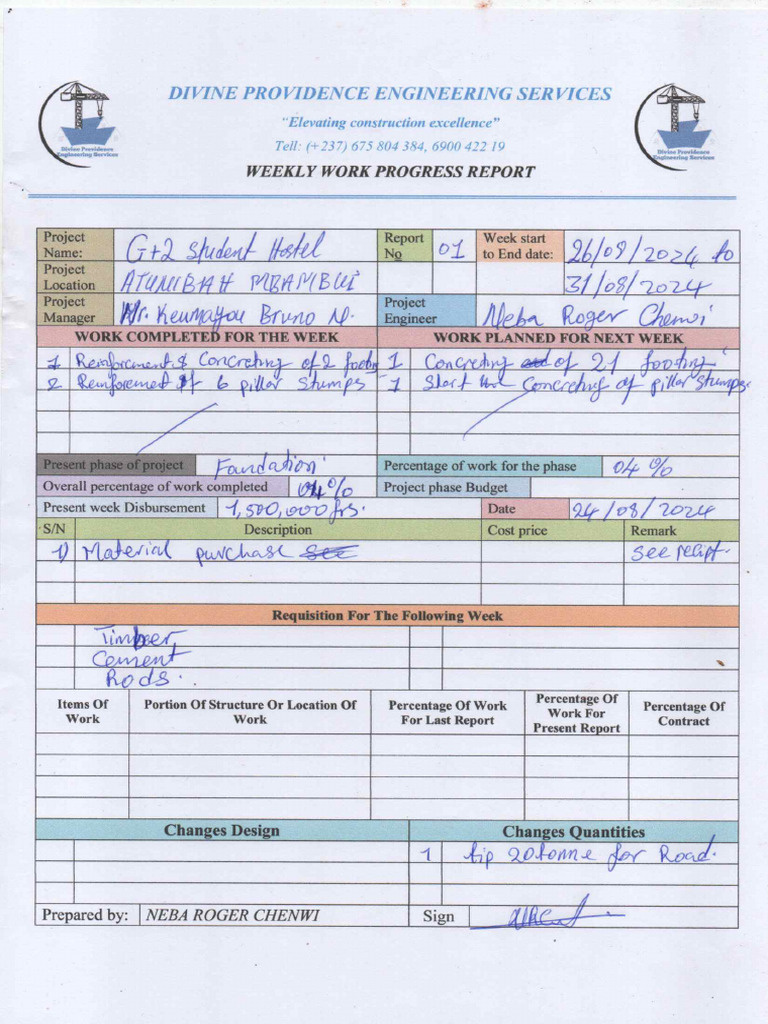 DIVINE PROVIDENCE ENGINEERING SERVICES
"Elevating construction excellence"
Tell: (+237) 675 804 384, 6900 422 19
WEEKLY WORK PROGRESS REPORT
Divine Providence Engineering Services
Divine Providence Engineering Services
Project Name: G+2 Student Hostel Report No 01 Week start to End date: 26/08/2024 to
Project Location ATUMIBAH MBAMBUI 31/08/2024
Project Manager Mr. Keumayou Bruno N. Project Engineer Neba Roger Chenwi
WORK COMPLETED FOR THE WEEK WORK PLANNED FOR NEXT WEEK
1 Reinforcement & Concreting of 2 footing 1 Concreting of 21 footing
2 Reinforcement of 6 pillar stumps 1 Start Concreting of pillar stumps.
Present phase of project Foundation Percentage of work for the phase 04 %
Overall percentage of work completed 04% Project phase Budget
Present week Disbursement 1,500,000 frs. Date 24/08/2024
S/N Description Cost price Remark
1) Material purchase see recipt.
Requisition For The Following Week
Timber,
Cement
Rods..
Items Of Work Portion Of Structure Or Location Of Work Percentage Of Work For Last Report Percentage Of Work For Present Report Percentage Of Contract
Changes Design Changes Quantities
1 tip 20tonne for Road.
Prepared by: NEBA ROGER CHENWI Sign